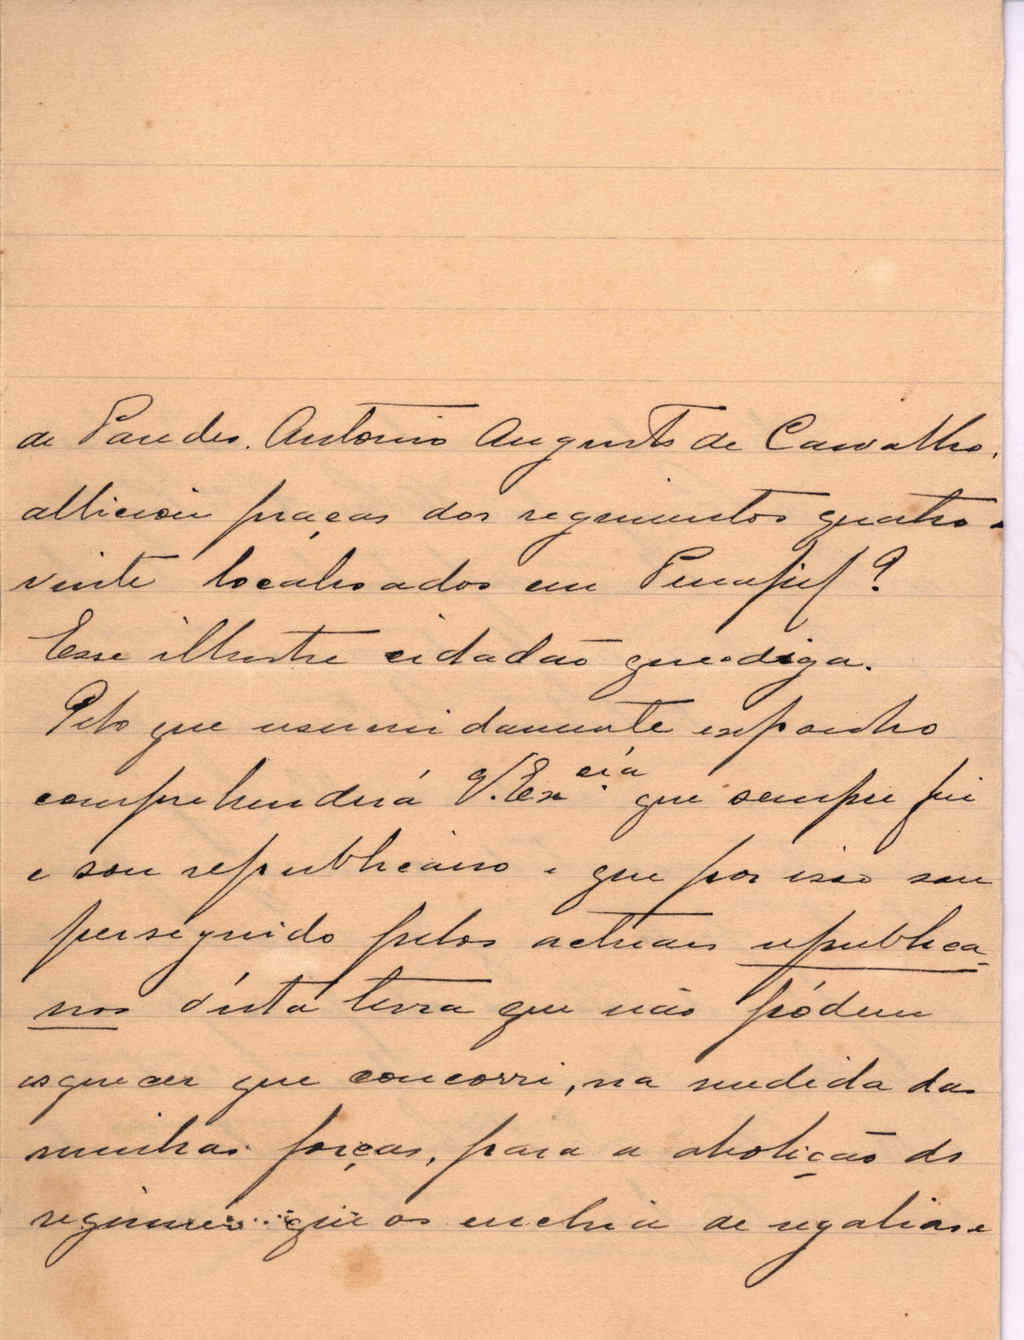 de Paredes. Antonio Augusto de Carvalho,
alliciou praças dos regimentos quatro e
vinte localisados em Penafiel?
Esse illustre cidadão que o diga.
Pelo que resumidamente exponho
comprehenderá V. Ex.cia que sempre fui
e sou republicano e que por isso sou
perseguido pelos actuaes republica-
nos d'esta terra que não pódem
esquecer que concorri, na medida das
minhas forças, para a abolição do
regimen... que os enchia de regalias e